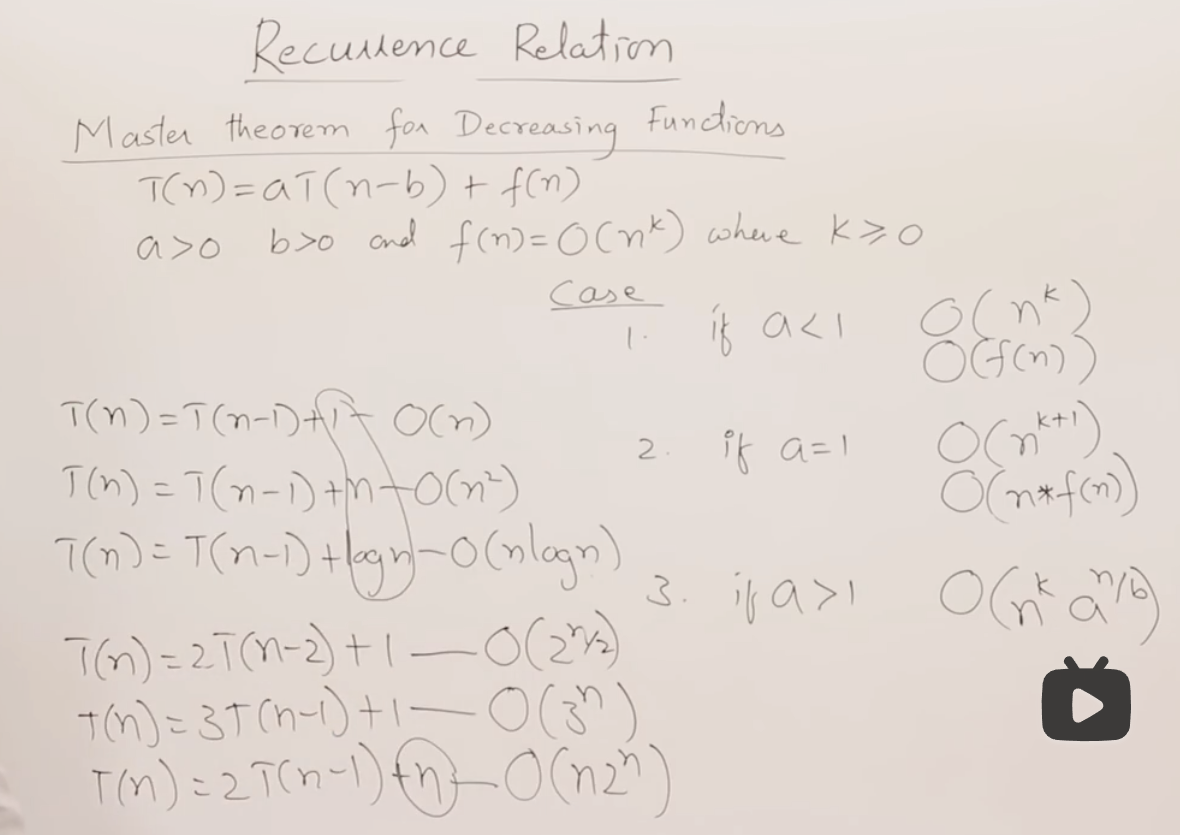 Recurrence Relation
Master theorem for Decreasing Functions
T(n)=aT(n-b)+f(n)
a>0 b>0 and f(n)=O(n^k) where k≥0
Case
1. if a<1 O(n^k)
O(f(n))
2. if a=1 O(n^{k+1})
O(n*f(n))
3. if a>1 O(n^k a^{n/b})
T(n)=T(n-1)+1 - O(n)
T(n)=T(n-1)+n - O(n²)
T(n)=T(n-1)+logn - O(nlogn)
T(n)=2T(n-2)+1 — O(2^{n/2})
T(n)=3T(n-1)+1 — O(3^n)
T(n)=2T(n-1)+n - O(n2^n)